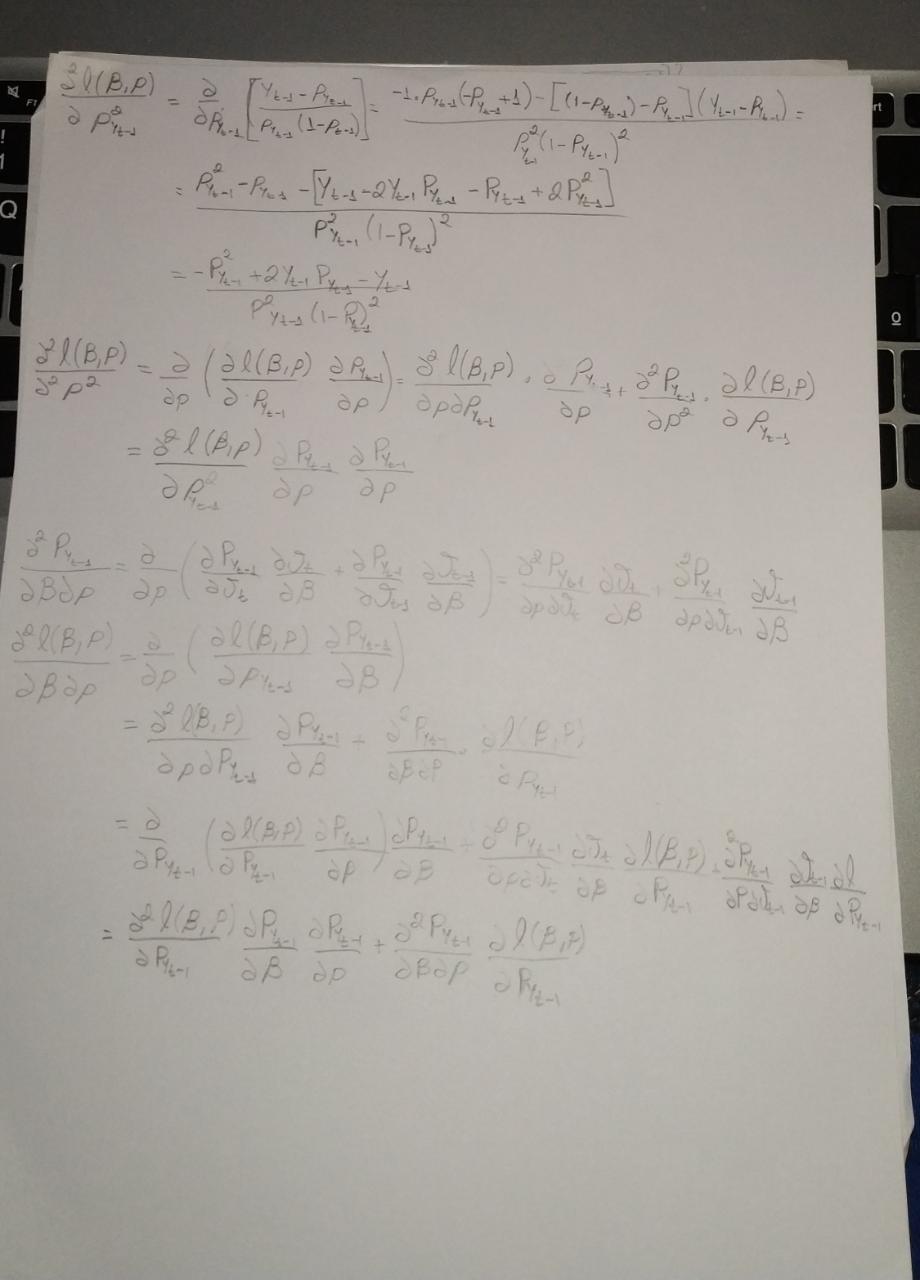 ∂²l(β,ρ)/∂P²_{y_{t-1}} = ∂/∂P_{y_{t-1}} [ (y_{t-1} - P_{y_{t-1}}) / (P_{y_{t-1}}(1-P_{y_{t-1}})) ] = (-1·P_{y_{t-1}}(-P_{y_{t-1}}+1) - [(1-P_{y_{t-1}}) - P_{y_{t-1}}](y_{t-1} - P_{y_{t-1}})) / (P²_{y_{t-1}}(1-P_{y_{t-1}})²) =
= (P²_{y_{t-1}} - P_{y_{t-1}} - [y_{t-1} - 2y_{t-1}P_{y_{t-1}} - P_{y_{t-1}} + 2P²_{y_{t-1}}]) / (P²_{y_{t-1}}(1-P_{y_{t-1}})²)
= (-P²_{y_{t-1}} + 2y_{t-1}P_{y_{t-1}} - y_{t-1}) / (P²_{y_{t-1}}(1-P_{y_{t-1}})²)
∂²l(β,ρ)/∂²ρ² = ∂/∂ρ ( ∂l(β,ρ)/∂P_{y_{t-1}} ∂P_{y_{t-1}}/∂ρ ) = ∂²l(β,ρ)/∂ρ∂P_{y_{t-1}} · ∂P_{y_{t-1}}/∂ρ + ∂²P_{y_{t-1}}/∂ρ² · ∂l(β,ρ)/∂P_{y_{t-1}}
= ∂²l(β,ρ)/∂P²_{y_{t-1}} ∂P_{y_{t-1}}/∂ρ ∂P_{y_{t-1}}/∂ρ
∂²P_{y_{t-1}}/∂β∂ρ = ∂/∂ρ ( ∂P_{y_{t-1}}/∂J_t ∂J_t/∂β + ∂P_{y_{t-1}}/∂J_{t-1} ∂J_{t-1}/∂β ) = ∂²P_{y_{t-1}}/∂ρ∂J_t ∂J_t/∂β + ∂²P_{y_{t-1}}/∂ρ∂J_{t-1} ∂J_{t-1}/∂β
∂²l(β,ρ)/∂β∂ρ = ∂/∂ρ ( ∂l(β,ρ)/∂P_{y_{t-1}} ∂P_{y_{t-1}}/∂β )
= ∂²l(β,ρ)/∂ρ∂P_{y_{t-1}} ∂P_{y_{t-1}}/∂β + ∂²P_{y_{t-1}}/∂β∂ρ · ∂l(β,ρ)/∂P_{y_{t-1}}
= ∂/∂P_{y_{t-1}} ( ∂l(β,ρ)/∂P_{y_{t-1}} ∂P_{y_{t-1}}/∂ρ ) ∂P_{y_{t-1}}/∂β + ∂²P_{y_{t-1}}/∂ρ∂J_t ∂J_t/∂β ∂l(β,ρ)/∂P_{y_{t-1}} + ∂²P_{y_{t-1}}/∂ρ∂J_{t-1} ∂J_{t-1}/∂β ∂l/∂P_{y_{t-1}}
= ∂²l(β,ρ)/∂P_{y_{t-1}} ∂P_{y_{t-1}}/∂β ∂P_{y_{t-1}}/∂ρ + ∂²P_{y_{t-1}}/∂β∂ρ ∂l(β,ρ)/∂P_{y_{t-1}}
F1
!
1
Q
rt
º